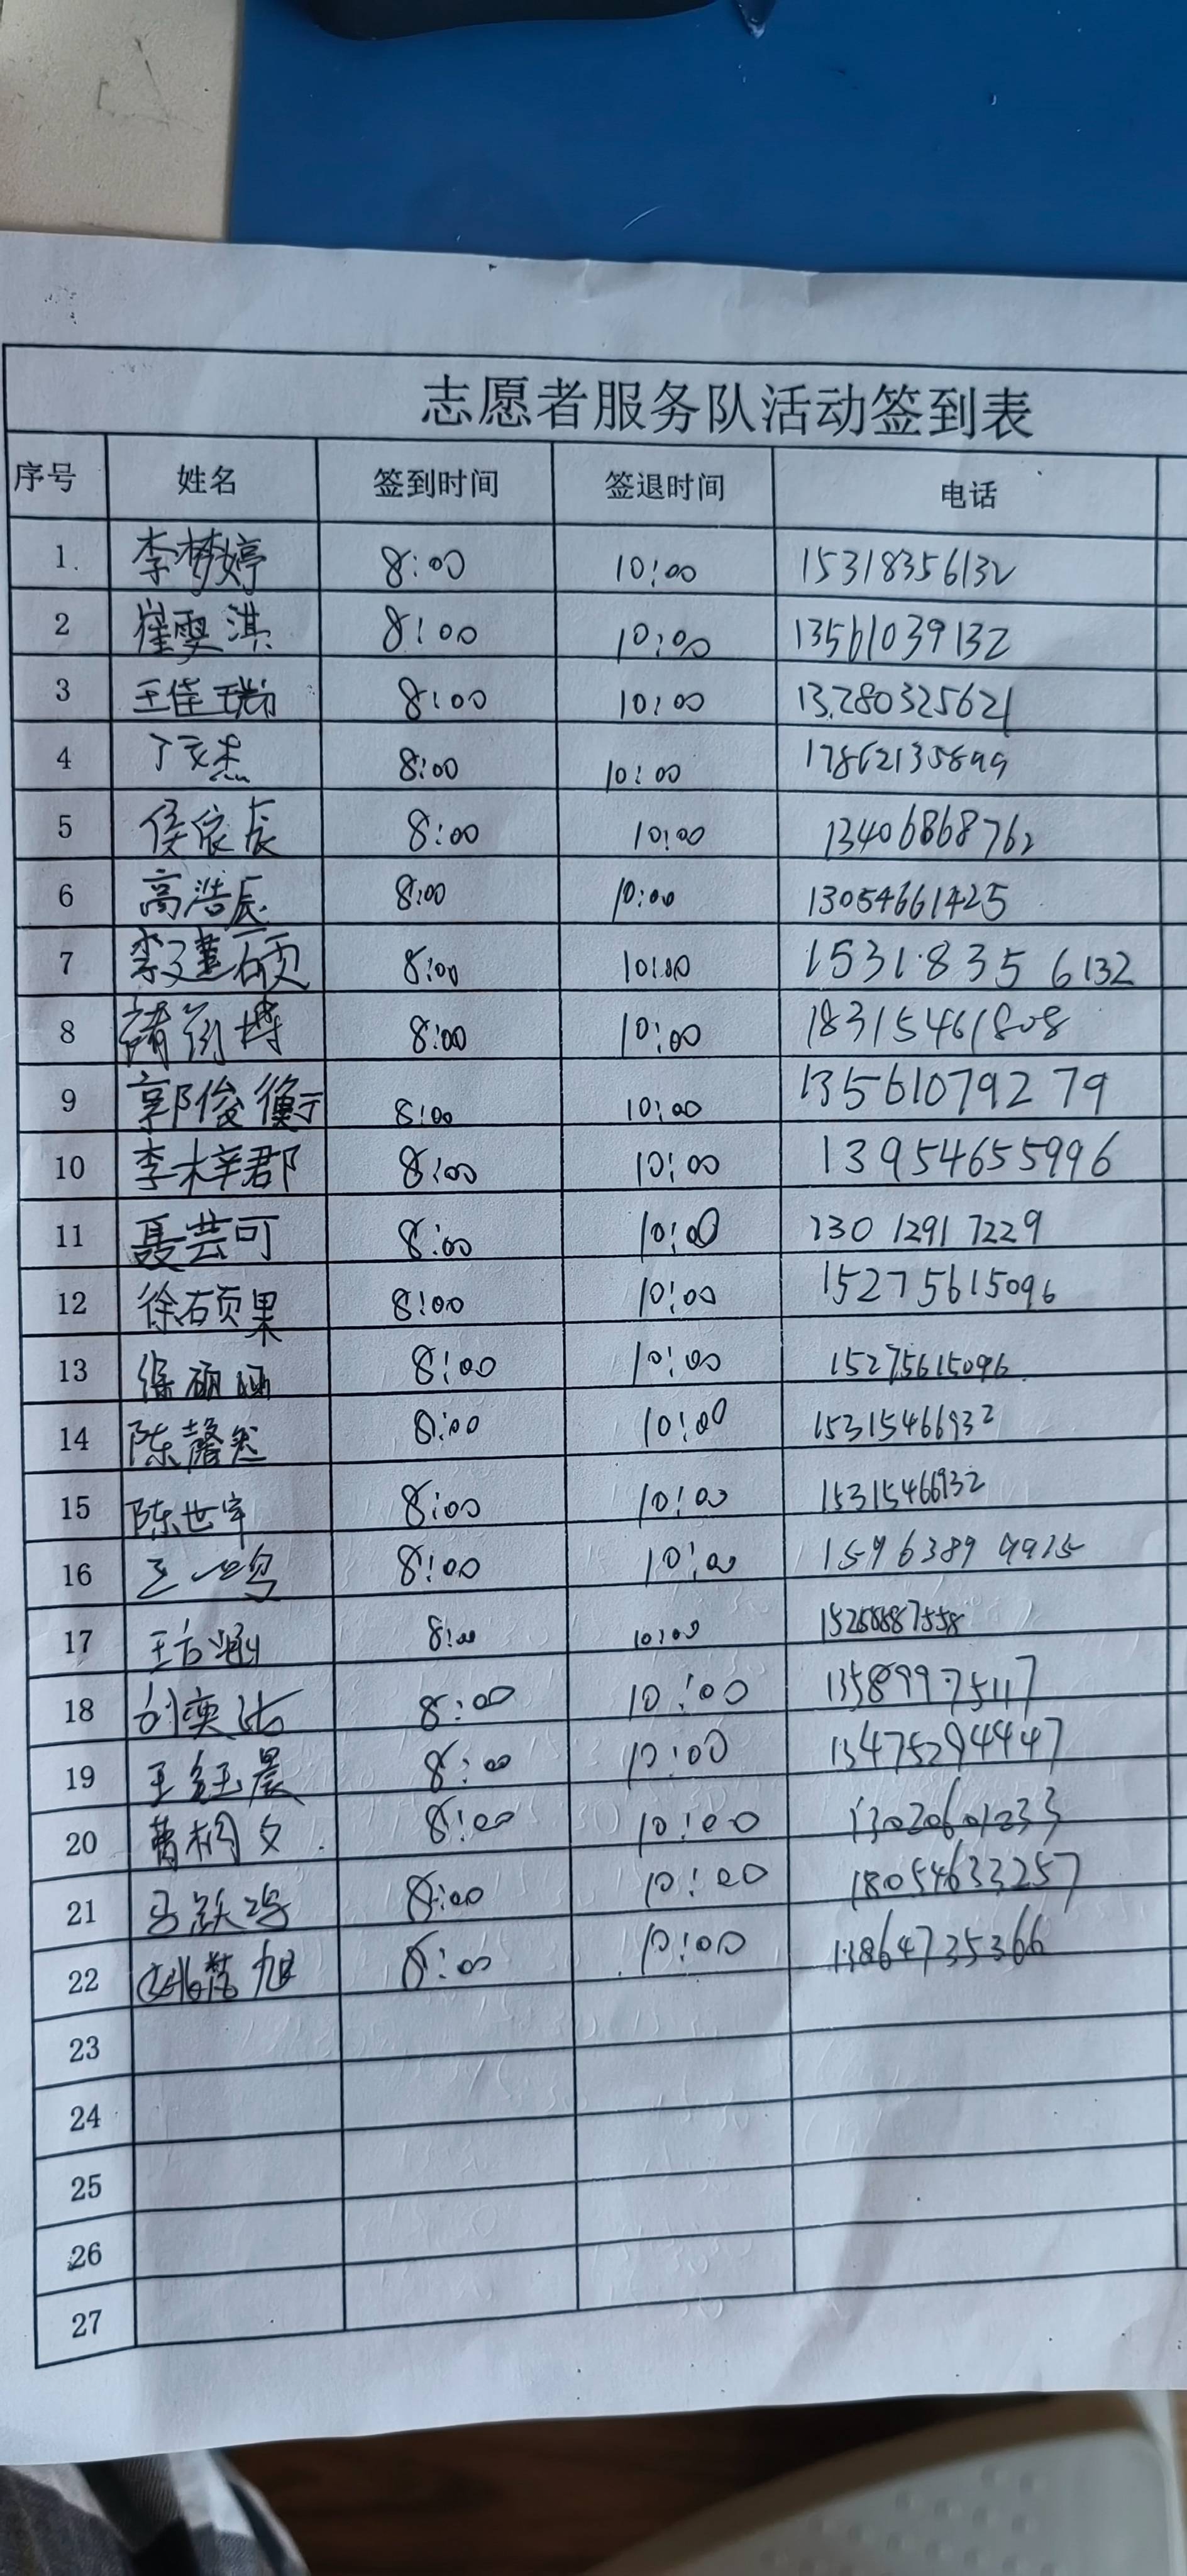 志愿者服务队活动签到表
序号 姓名 签到时间 签退时间 电话
1. 李梦婷 8:00 10:00 15318356132
2 崔雯淇 8:00 10:00 13561039132
3 王佳 8:00 10:00 13280325621
4 丁文杰 8:00 10:00 17862135899
5 侯依辰 8:00 10:00 13406868762
6 高浩辰 8:00 10:00 13054661425
7 李建硕 8:00 10:00 15318356132
8 8:00 10:00 18315461808
9 郭俊衡 8:00 10:00 13561079279
10 李梓郡 8:00 10:00 13954655996
11 聂芸可 8:00 10:00 13012917229
12 徐硕果 8:00 10:00 15275615096
13 徐硕涵 8:00 10:00 15275615096
14 陈馨悠 8:00 10:00 15315466932
15 陈世宇 8:00 10:00 15315466932
16 王一鸣 8:00 10:00
17 8:00 10:00
18 刘奕 8:00 10:00 13589975117
19 王钰晨 8:00 10:00 13475294447
20 曹桐文 8:00 10:00 13020601233
21 马跃 8:00 10:00 18054633257
22 旭 8:00 10:00 13864735366
23
24
25
26
27